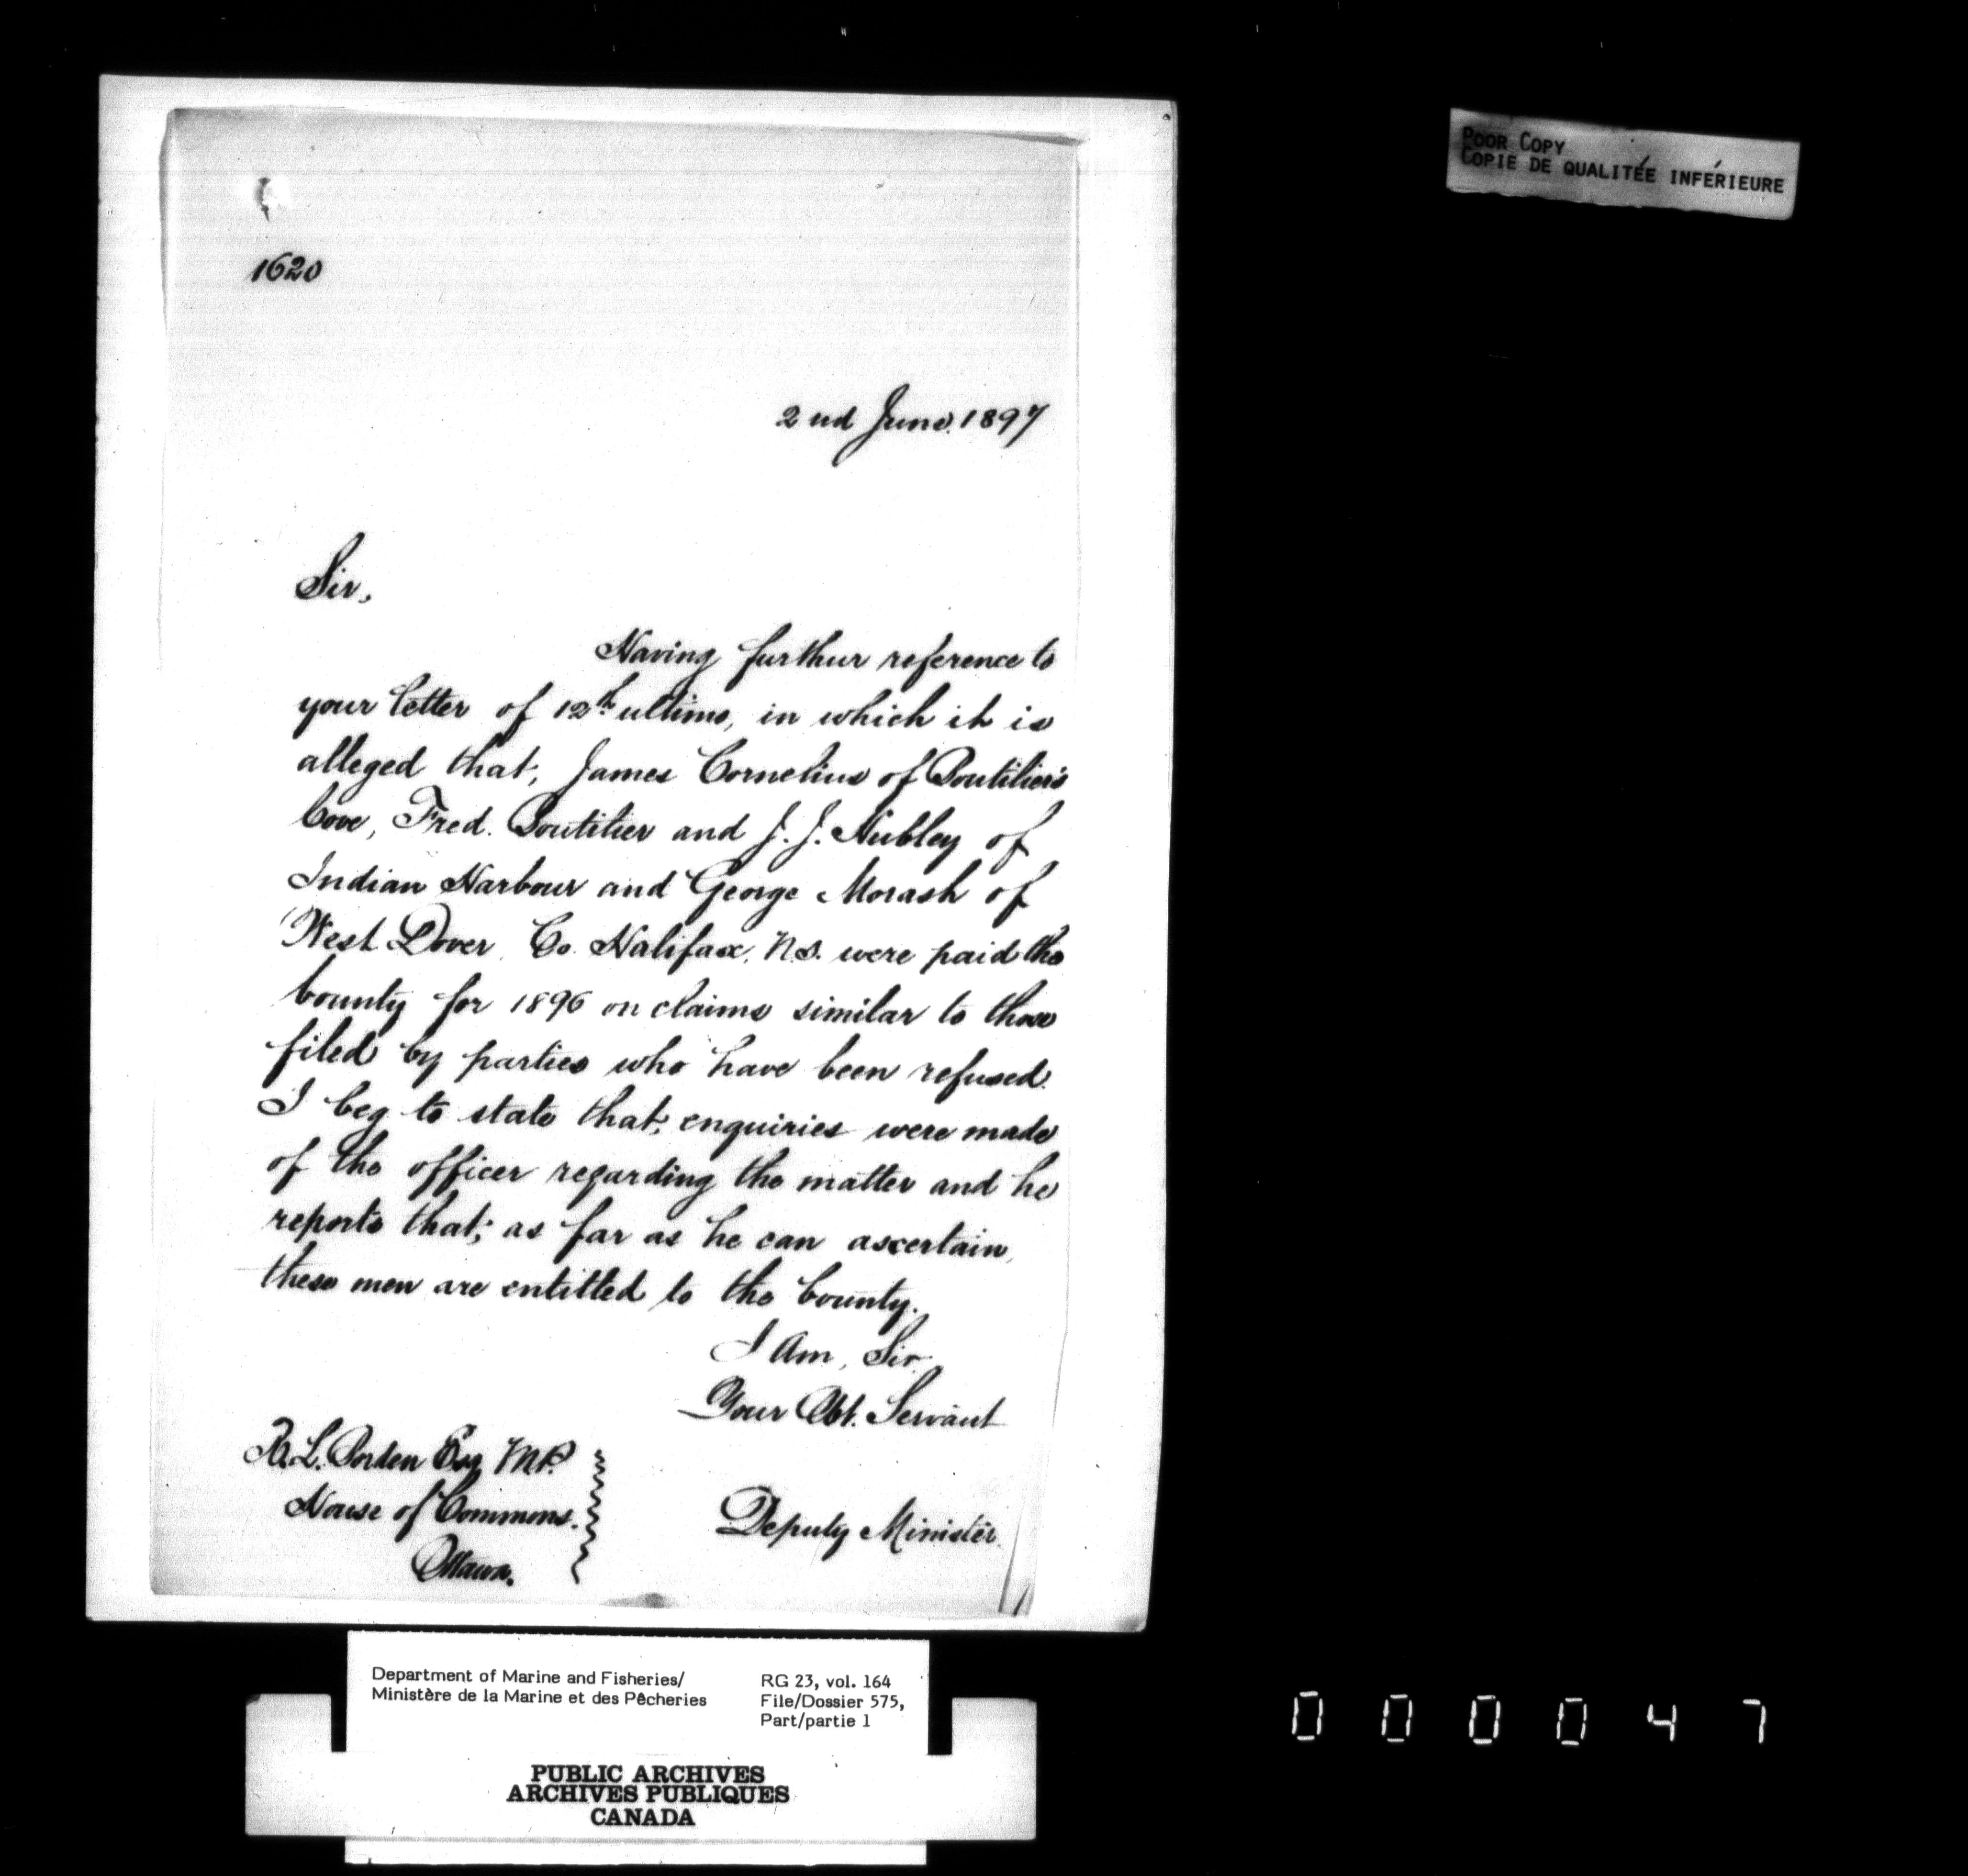 POOR COPY
COPIE DE QUALITÉE INFÉRIEURE
1620
2nd June. 1897
Sir,
Having furthur reference to
your letter of 12th ultimo, in which it is
alleged that, James Cornelius of Boutilier's
Cove, Fred. Boutilier and J. J. Hubley of
Indian Harbour and George Morash of
West Dover, Co. Halifax, N.S. were paid the
bounty for 1896 on claims similar to those
filed by parties who have been refused.
I beg to state that, enquiries were made
of the officer regarding the matter and he
reports that; as far as he can ascertain,
these men are entitled to the bounty.
I Am, Sir.
Your Obt. Servant
R. L. Borden Esq M.P.
House of Commons.
Ottawa.
Deputy Minister.
Department of Marine and Fisheries/
Ministère de la Marine et des Pêcheries
RG 23, vol. 164
File/Dossier 575,
Part/partie 1
PUBLIC ARCHIVES
ARCHIVES PUBLIQUES
CANADA
000047